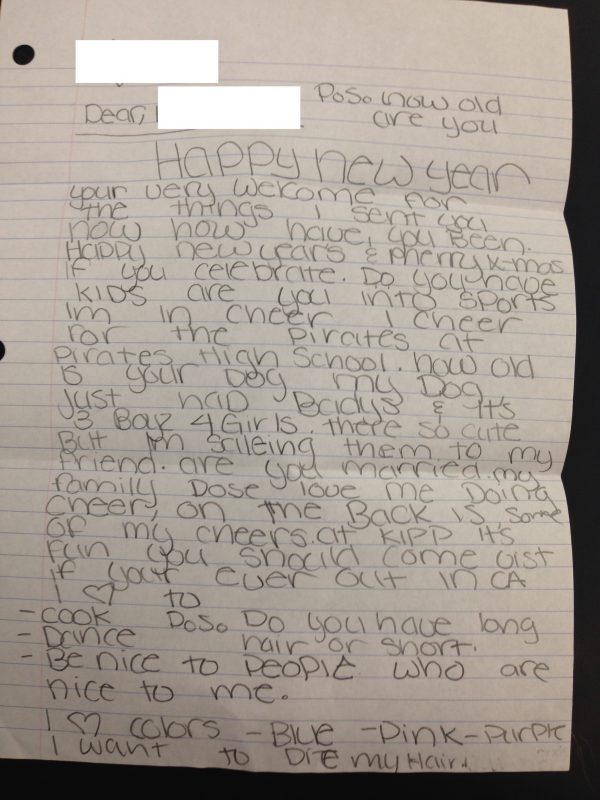 Dear,
PoSo how old
are you
Happy new year
your very welcome for
the things I sent you
now how have, you Been.
Happy new years & Merry X-mas
if you celebrate. Do you have
KIDS are you into sports
Im in cheer I cheer
For the Pirates at
Pirates High School. how old
is your Dog my Dog
Just had Badys & It's
3 Boyz 4 Girls. there so cute
But Im saleing them to my
friend. are you married. my
family Dose love me Doing
Cheer, on the Back is some
of my cheers. at KIPP It's
Fun you should come vist
if your ever out in CA
I ♡ to
- COOK PoSo Do you have long
- Dance hair or short.
- Be nice to people who are
nice to me.
I ♡ colors - Blue - Pink - Purple
I want to DIE my Hair.